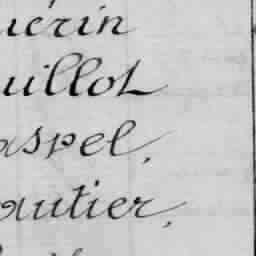 uérin
uillot
aspel,
autier,